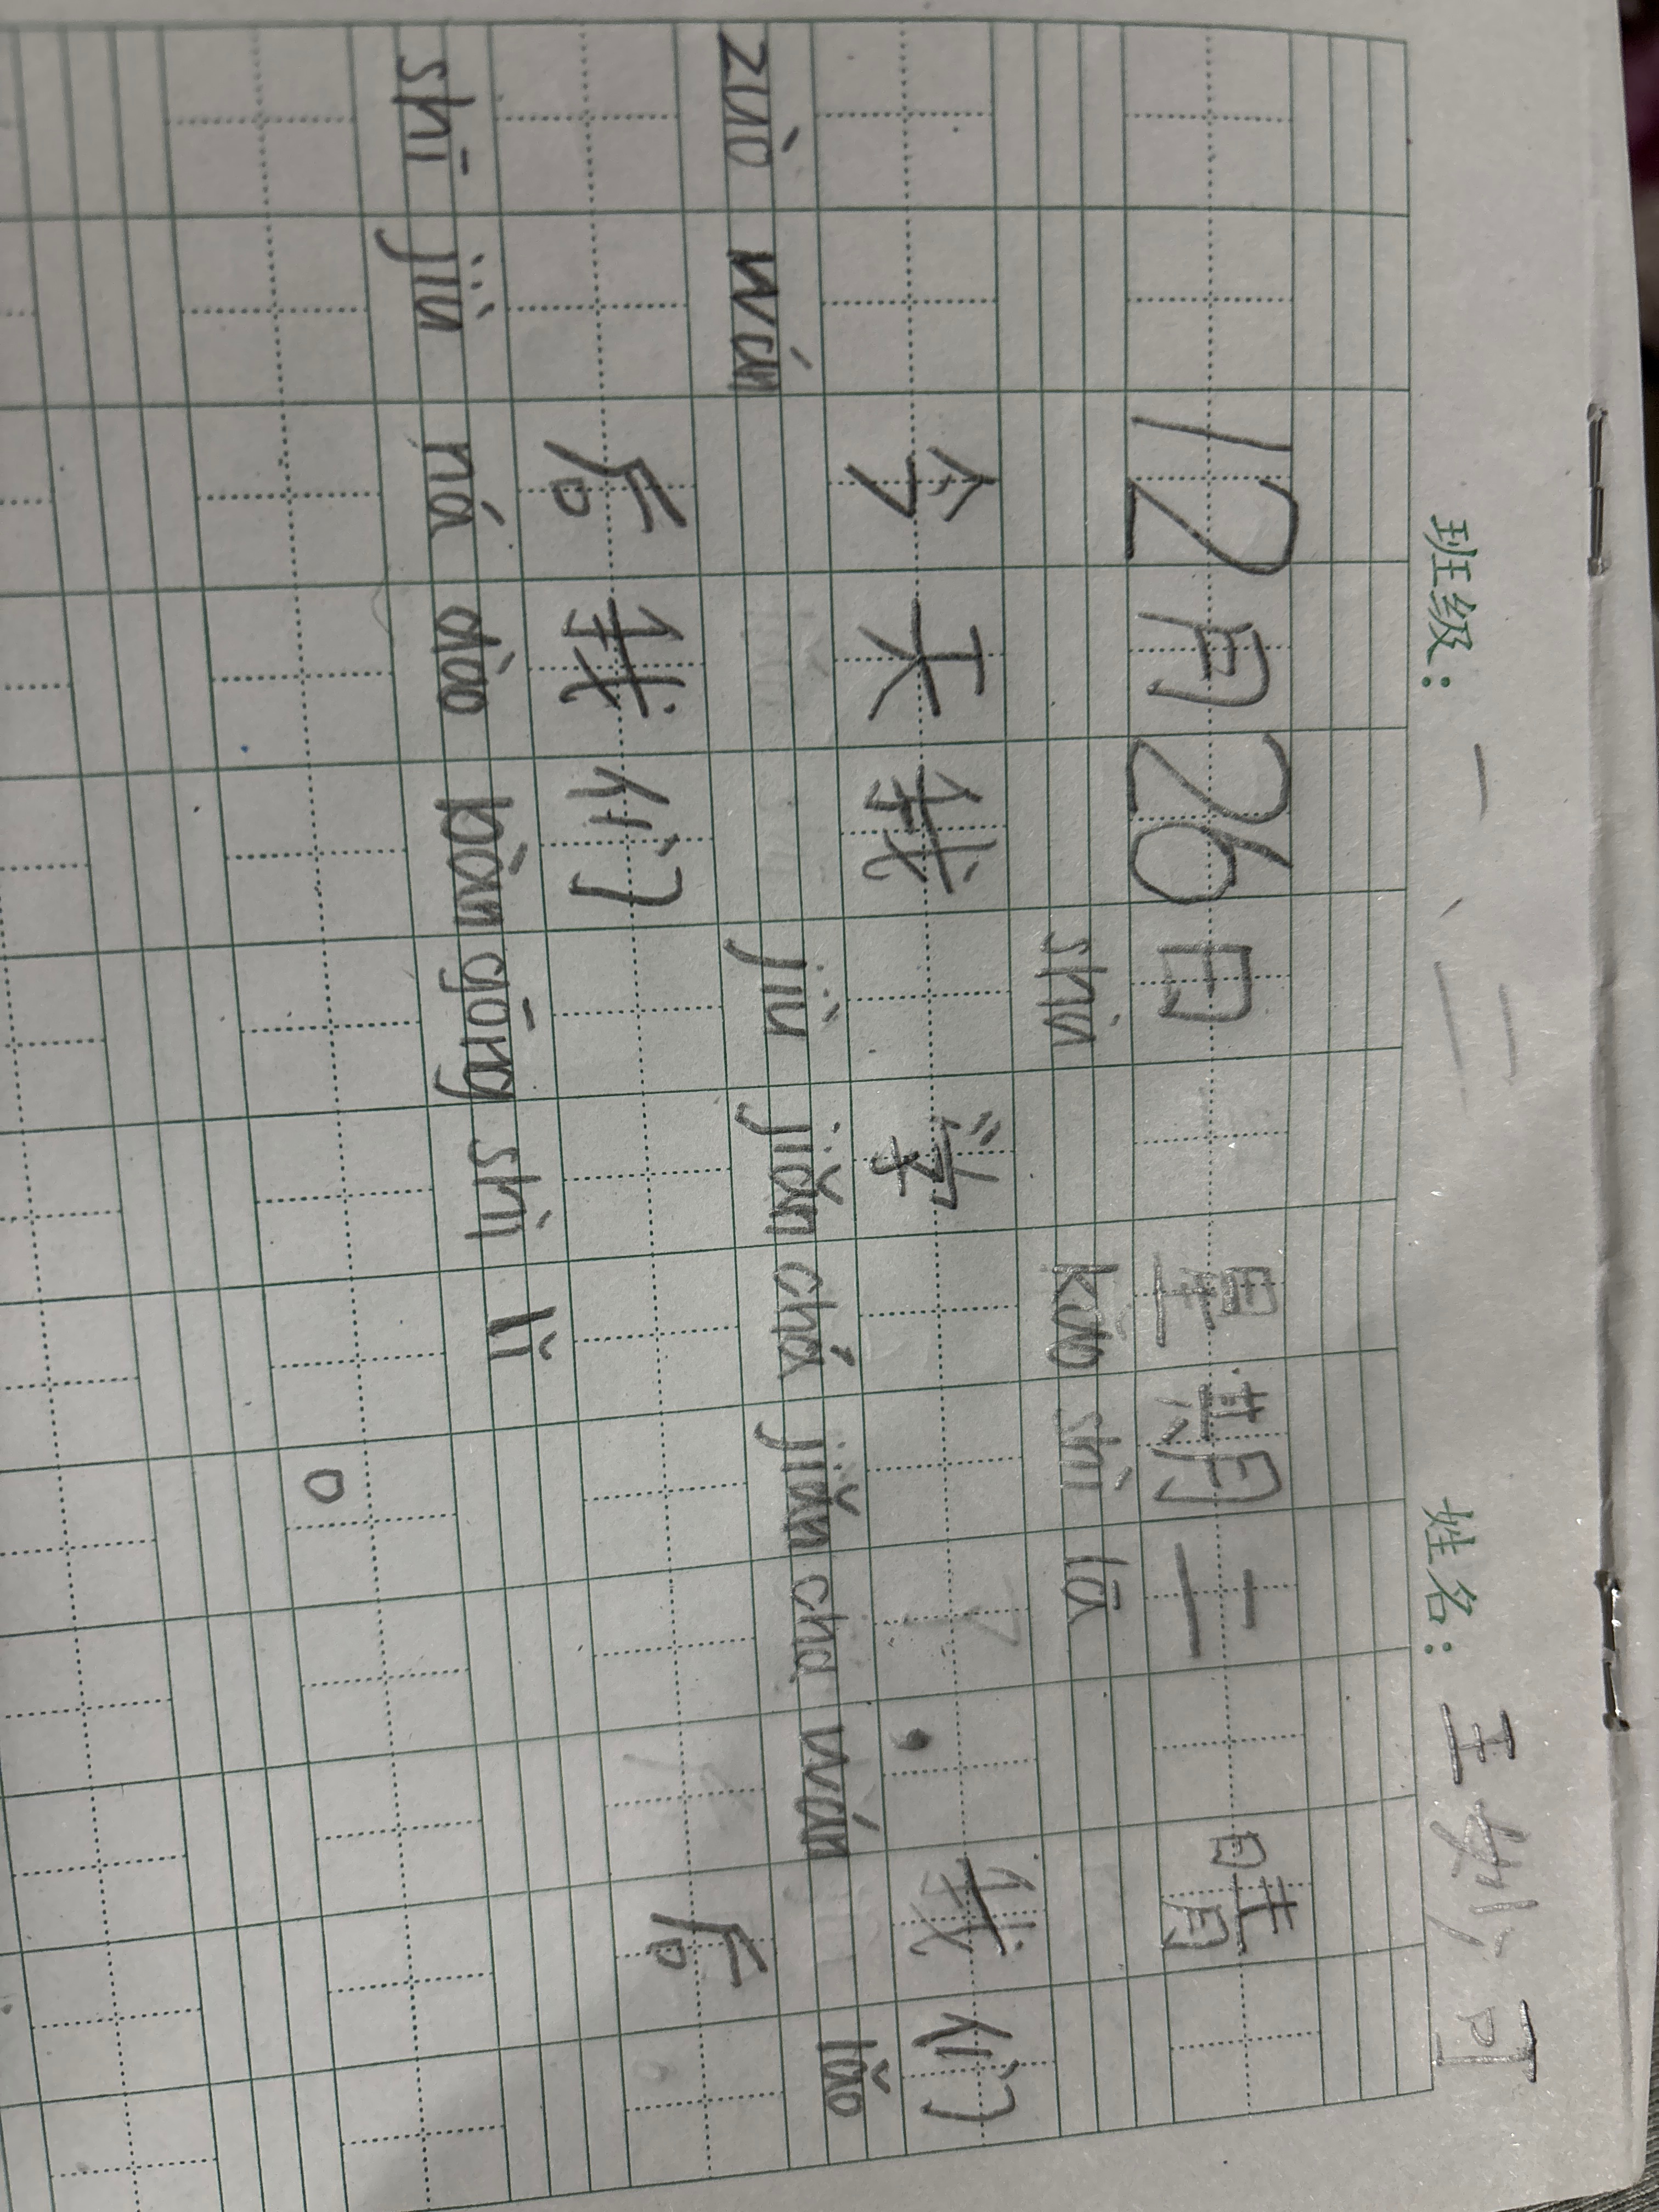 班级：一、二 姓名：王 可
12月26日 星期二 晴
今天我 shù 学 kǎo shì lā ，我们
zuò wán 后我们 jiù jiǎn chá jiǎn cha wán 后 lǎo
shī jiù ná dào bàn gōng shì lǐ 。